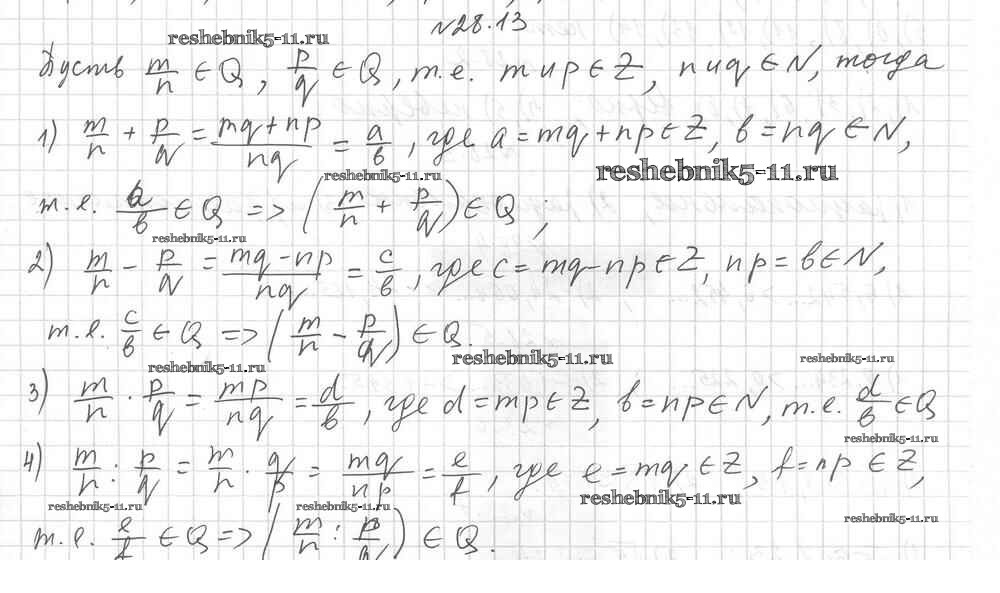 №28.13
reshebnik5-11.ru
Пусть m/n ∈ Q, p/q ∈ Q, т.е. m и p ∈ Z, n и q ∈ N, тогда
1) m/n + p/q = (mq + np)/(nq) = a/b, где a = mq + np ∈ Z, b = nq ∈ N,
reshebnik5-11.ru
reshebnik5-11.ru
т.е. a/b ∈ Q => (m/n + p/q) ∈ Q,
reshebnik5-11.ru
2) m/n − p/q = (mq − np)/(nq) = c/b, где c = mq − np ∈ Z, np = b ∈ N,
т.е. c/b ∈ Q => (m/n − p/q) ∈ Q.
reshebnik5-11.ru
reshebnik5-11.ru
reshebnik5-11.ru
3) m/n · p/q = mp/nq = d/b, где d = mp ∈ Z, b = np ∈ N, т.е. d/b ∈ Q
reshebnik5-11.ru
4) m/n : p/q = m/n · q/p = mq/np = e/f, где e = mq ∈ Z, f = np ∈ Z,
reshebnik5-11.ru
reshebnik5-11.ru
reshebnik5-11.ru
reshebnik5-11.ru
т.е. e/f ∈ Q => (m/n : p/q) ∈ Q.